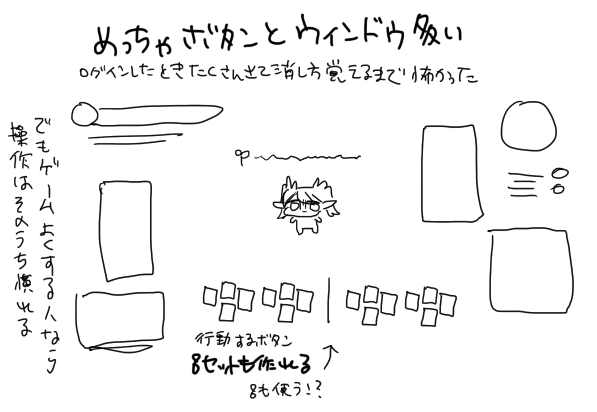 めっちゃボタンとウィンドウ多い
ログインしたときたくさん出て消し方覚えるまで怖かった
でもゲームよくする人なら
操作はそのうち慣れる
行動するボタン
8セットも作れる
8も使う!?